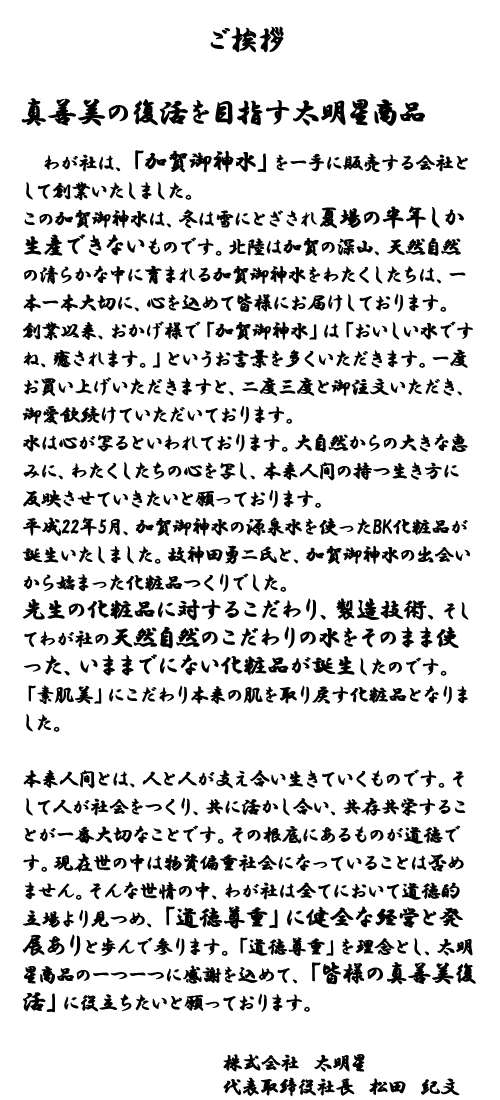 ご挨拶
真善美の復活を目指す太明星商品
わが社は、「加賀御神水」を一手に販売する会社と
して創業いたしました。
この加賀御神水は、冬は雪にとざされ夏場の半年しか
生産できないものです。北陸は加賀の深山、天然自然
の清らかな中に育まれる加賀御神水をわたくしたちは、一
本一本大切に、心を込めて皆様にお届けしております。
創業以来、おかげ様で「加賀御神水」は「おいしい水です
ね、癒されます。」というお言葉を多くいただきます。一度
お買い上げいただきますと、二度三度と御注文いただき、
御愛飲続けていただいております。
水は心が写るといわれております。大自然からの大きな恵
みに、わたくしたちの心を写し、本来人間の持つ生き方に
反映させていきたいと願っております。
平成22年5月、加賀御神水の源泉水を使ったBK化粧品が
誕生いたしました。故神田勇二氏と、加賀御神水の出会い
から始まった化粧品つくりでした。
先生の化粧品に対するこだわり、製造技術、そし
てわが社の天然自然のこだわりの水をそのまま使
った、いままでにない化粧品が誕生したのです。
「素肌美」にこだわり本来の肌を取り戻す化粧品となりま
した。
本来人間とは、人と人が支え合い生きていくものです。そ
して人が社会をつくり、共に活かし合い、共存共栄するこ
とが一番大切なことです。その根底にあるものが道徳で
す。現在世の中は物資偏重社会になっていることは否め
ません。そんな世情の中、わが社は全てにおいて道徳的
立場より見つめ、「道徳尊重」に健全な経営と発
展ありと歩んで参ります。「道徳尊重」を理念とし、太明
星商品の一つ一つに感謝を込めて、「皆様の真善美復
活」に役立ちたいと願っております。
株式会社　太明星
代表取締役社長　松田　紀文